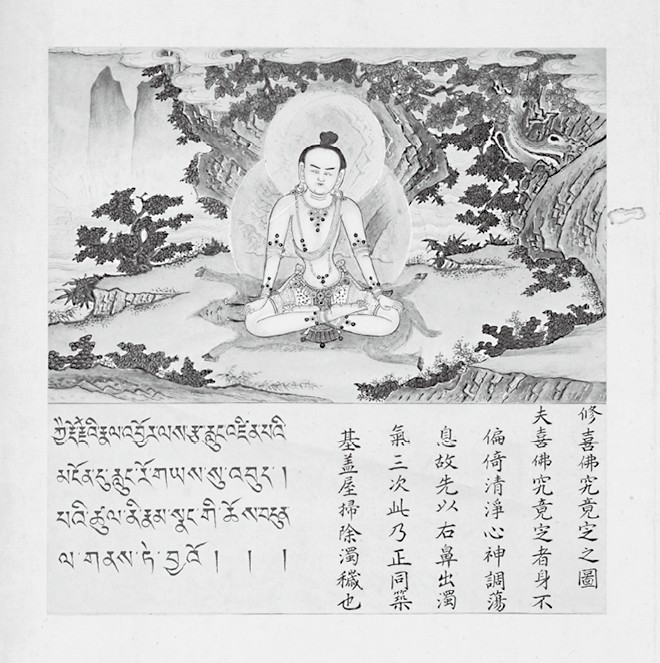 ཀྱཻ་རྡོ་རྗེའི་རྣལ་འབྱོར་ལས་རྩ་རླུང་འཛིན་པའི
མངོན་དུ་རླུང་རོ་གཡས་སུ་འབུད་།
པའི་ཚུལ་ནི་རྣམ་སྣང་གི་ཆོས་བདུན
ལ་གནས་ཏེ་བྱ་འོ། ། །
修喜佛究竟定之圖
夫喜佛究竟定者身不
偏倚清淨心神調蕩
息故先以右鼻出濁
氣三次此乃正同築
基盖屋掃除濁穢也